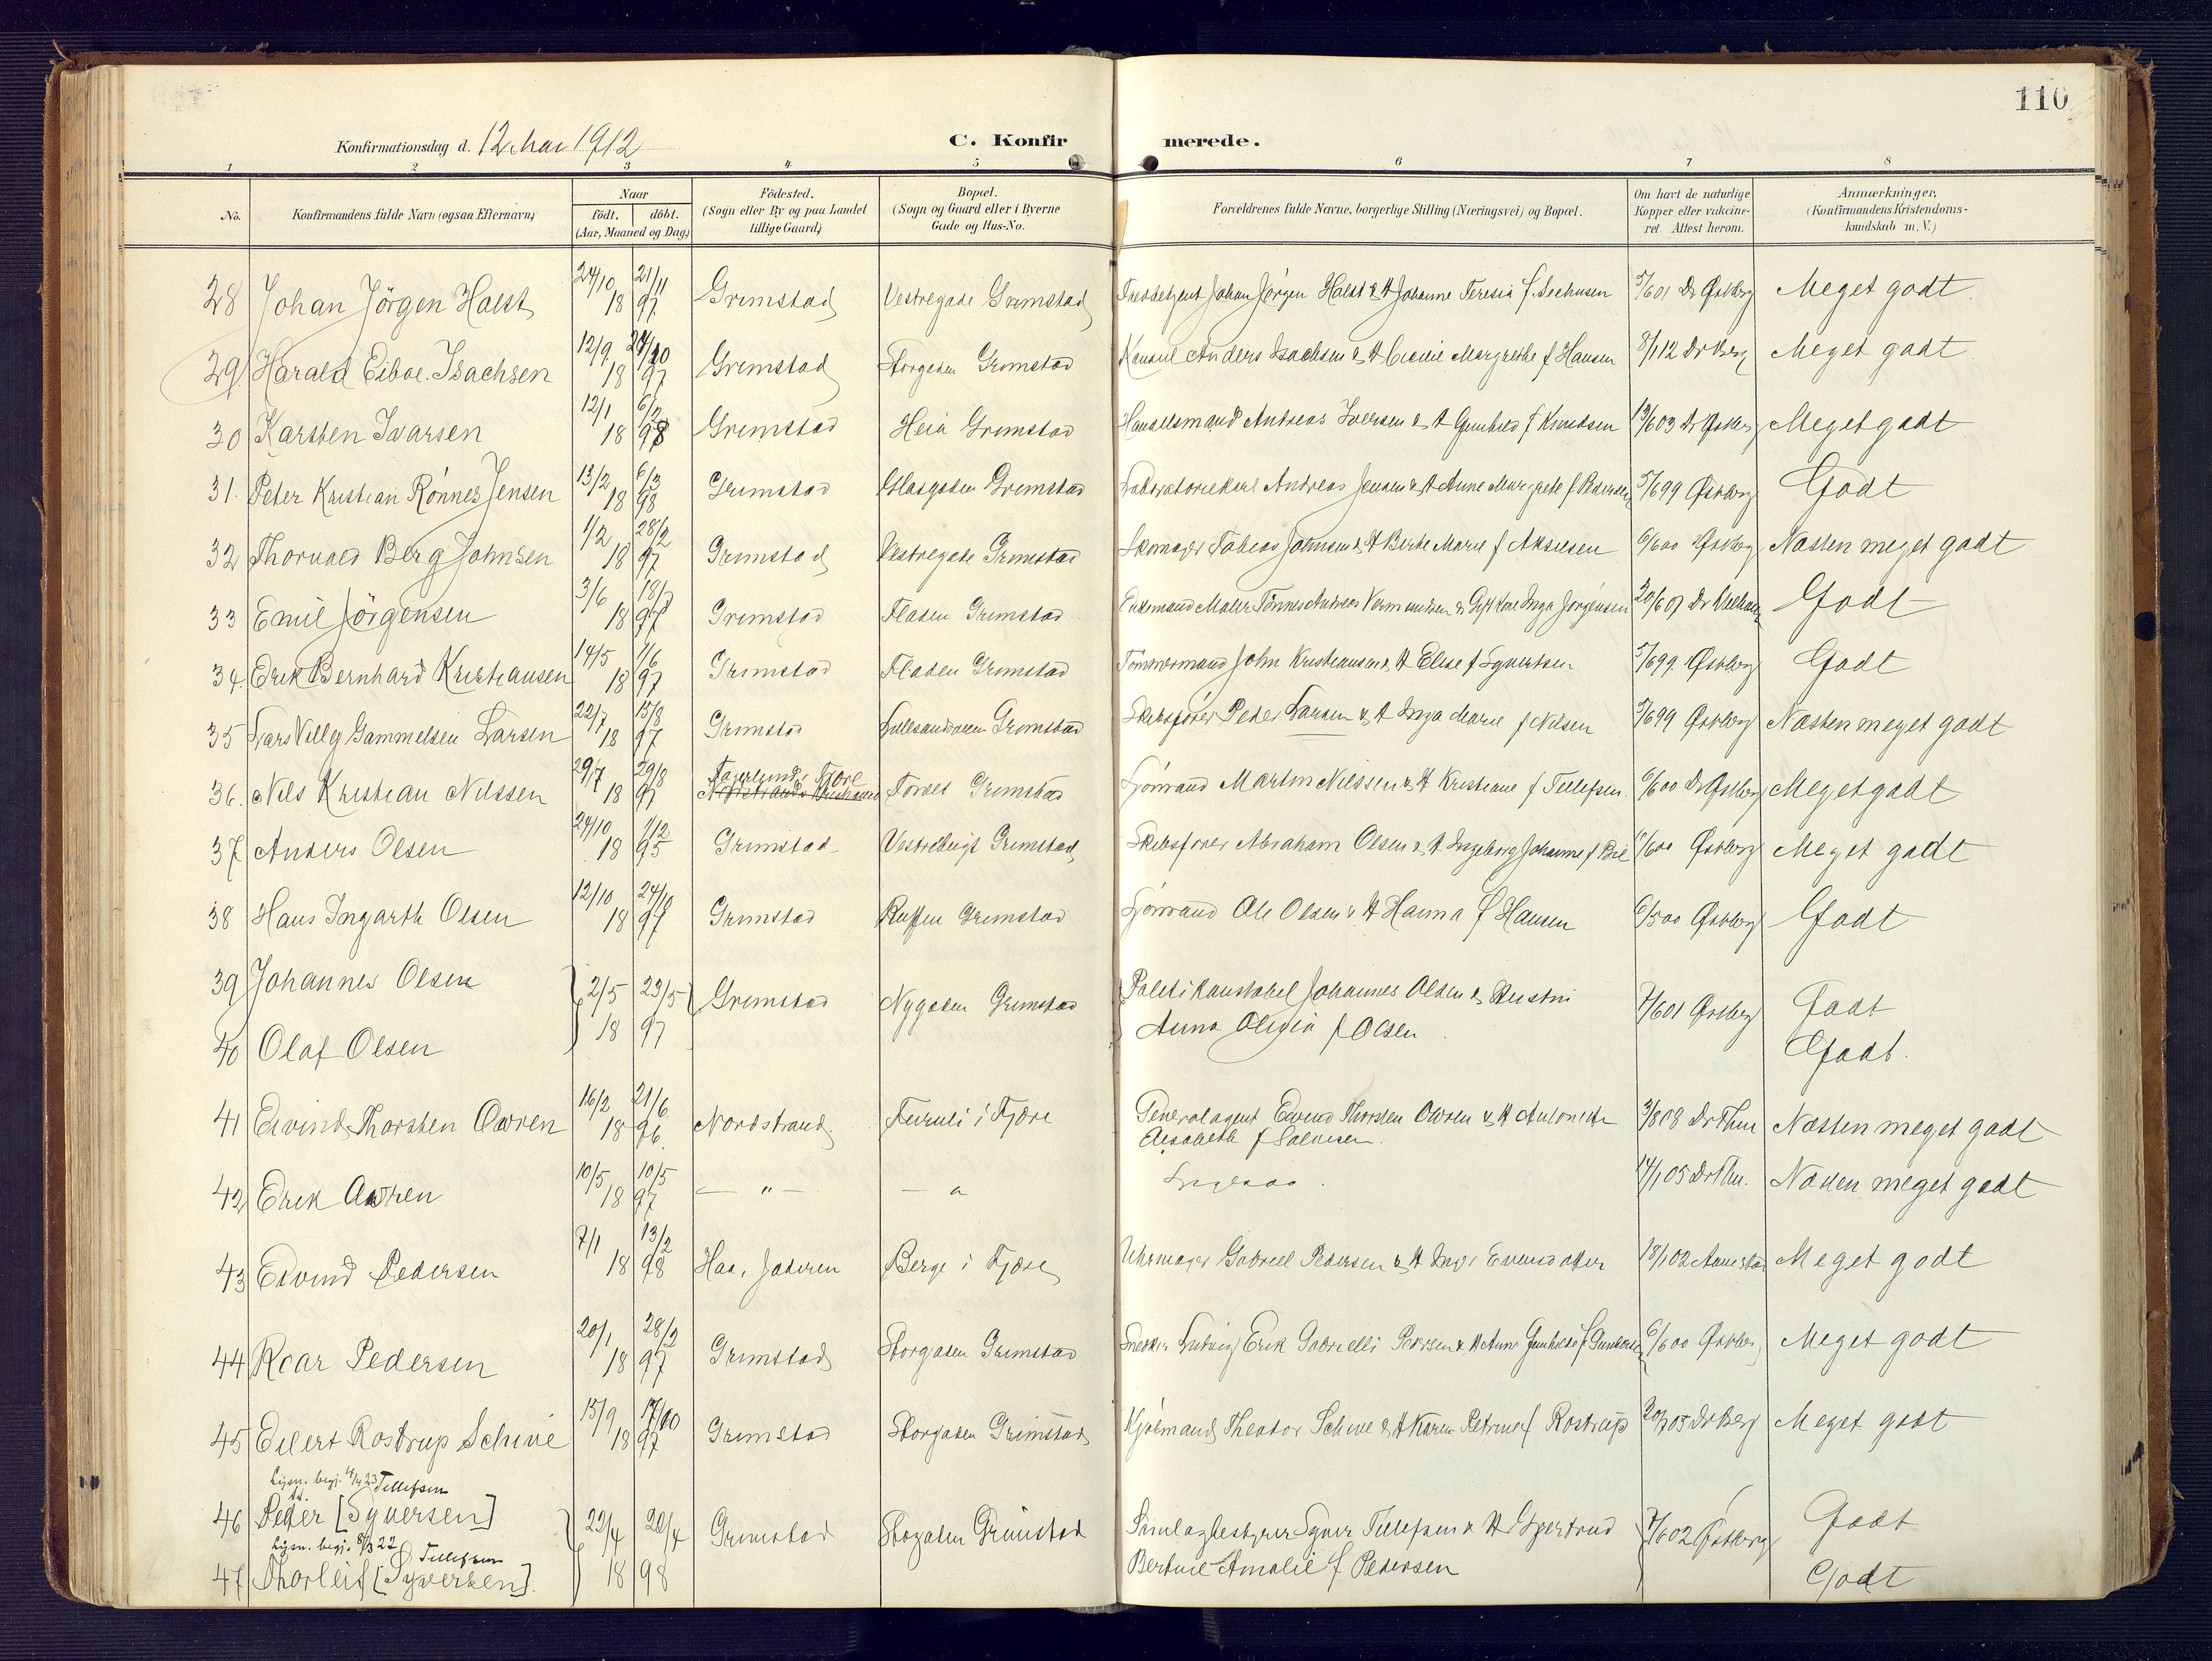 110
Konfirmationsdag d. 12 Mai 1912
C. Konfirmerede.
1 2 3 4 5 6 7 8
No. Konfirmandens fulde Navn (ogsaa Efternavn) Naar födt. döbt. (Aar, Maaned og Dag) Födested. (Sogn eller By og paa Landet tillige Gaard) Bopæl. (Sogn og Gaard eller i Byerne Gade og Hus-No. Forældrenes fulde Navne, borgerlige Stilling (Næringsvei) og Bopæl. Om havt de naturlige Kopper eller vakcineret. Attest herom. Anmærkninger. (Konfirmandens Kristendomskundskab m. V.)
28 Johan Jörgen Holst 24/10 21/11 18 97 Grimstad Vestregade Grimstad Johan Jörgen Holst & H Johanne Teresia f. 5/6 01 Dr Østberg Meget godt
29 Harald Eiboe Isachsen 12/9 18 97 Grimstad Storgaden Grimstad Konsul Anders Isachsen & H Margrethe f Hansen 8/1 12 Dr Berg Meget godt
30 Karsten Ivarsen 12/1 6/2 18 98 Grimstad Heia Grimstad Handelsmand Andreas Iversen & H Gunhild f Knudsen 13/6 03 Dr Østberg Meget godt
31. Peter Kristian Rönnes Jensen 13/2 6/3 18 98 Grimstad Grimstad Andreas Jensen & H Anne Margrete f Pedersen 5/6 99 Østberg Godt
32 Thorvald Berg Johnsen 1/2 28/2 18 97 Grimstad Vestregade Grimstad Skomager Tobias Johnsen & H Berte Marie f Akselsen 6/6 00 Østberg Næsten meget godt
33 Emil Jörgensen 3/6 18/7 18 97 Grimstad Fladen Grimstad Enkemand Maler Tönnes Andreas & Inga Jörgensen 20/6 07 Godt
34. Erik Bernhard Kristiansen 14/5 1/6 18 97 Grimstad Fladen Grimstad Tömmermand John Kristiansen & H Elise f Syvertsen 5/6 99 Østberg Godt
35 Lars Villy Gammelsen Larsen 22/7 15/8 18 97 Grimstad Grimstad Skibsförer Peder Larsen & H Inga Marie f Nilsen 5/6 99 Østberg Næsten meget godt
36. Nils Kristian Nilssen 29/7 29/8 18 97 Fjære Grimstad Sjömand Martin Nilssen & H Kristiane f Tellefsen 6/6 00 Dr Østberg Meget godt
37 Anders Olsen 24/10 1/12 18 95 Grimstad Grimstad Skibsförer Abraham Olsen & H Ingeborg Johanne f Bie 6/6 00 Østberg Meget godt
38 Hans Ingarth Olsen 12/10 24/10 18 97 Grimstad Grimstad Sjömand Ole Olsen & H Hanna f Hansen 6/5 00 Østberg Godt
39 Johannes Olsen 2/5 23/5 18 97 Grimstad Nygaden Grimstad Politikonstabel Johannes Olsen & Hustru 7/6 01 Østberg Godt
40 Olaf Olsen Anna f Olsen Godt.
41 Eivind Thorsten Owren 16/2 21/6 18 96 Nordstrand Furuli i Fjære Generalagent Eivind Thorsten Owren & H Antonette Elisabeth f 3/8 08 Dr Thu Næsten meget godt
42 Erik Owren 10/5 10/5 18 97 — " — — " 14/1 05 Dr Thu. Næsten meget godt
43 Edvind Pedersen 7/1 13/2 18 98 Haa, Jæderen Berge i Fjære Uhrmager Gabriel Pedersen & H 18/1 02 Meget godt
44 Roar Pedersen 20/1 28/2 18 97 Grimstad Storgaden Grimstad Snekker Ludvig Erik Gabrielli Pedersen & H Anne Gunhild f 6/6 00 Østberg Meget godt
45 Eilert Rostrup Schive 15/9 17/10 18 97 Grimstad Storgaden Grimstad Kjöbmand Theodor Schive & H Karen Petrine f Rostrup 20/7 05 Dr Berg Meget godt
Lysn. begj. 4/4 23 Tellefsen
46 Peder [Syversen] 22/4 20/4 18 98 Grimstad Storgaden Grimstad Syver Tellefsen & H Gjertrud 7/6 02 Østberg Godt
Lysn. begj. 8/3 22 Tellefsen
47 Thorleif [Syversen]. Bertine Amalie f Pedersen Godt